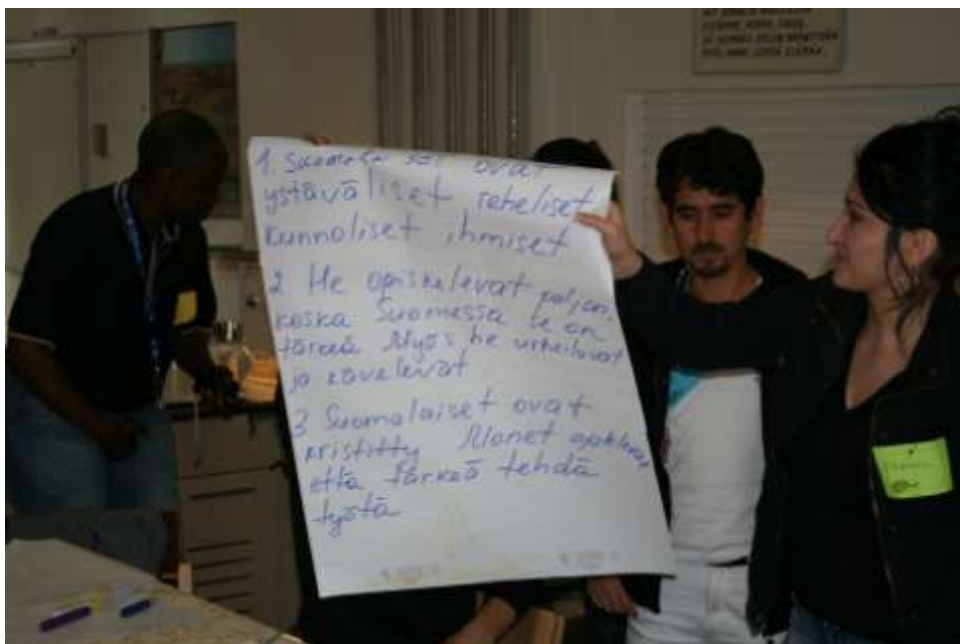 1. Suomalaiset ovat
ystäväliset reheliset
kunnoliset ihmiset
2 He opiskelevat paljon
koska Suomessa se on
tärkeä Myös he urheilovat
ja kävelevat
3 Suomalaiset ovat
kristitty Monet ajattelevat
että tärkeä tehdä
työtä